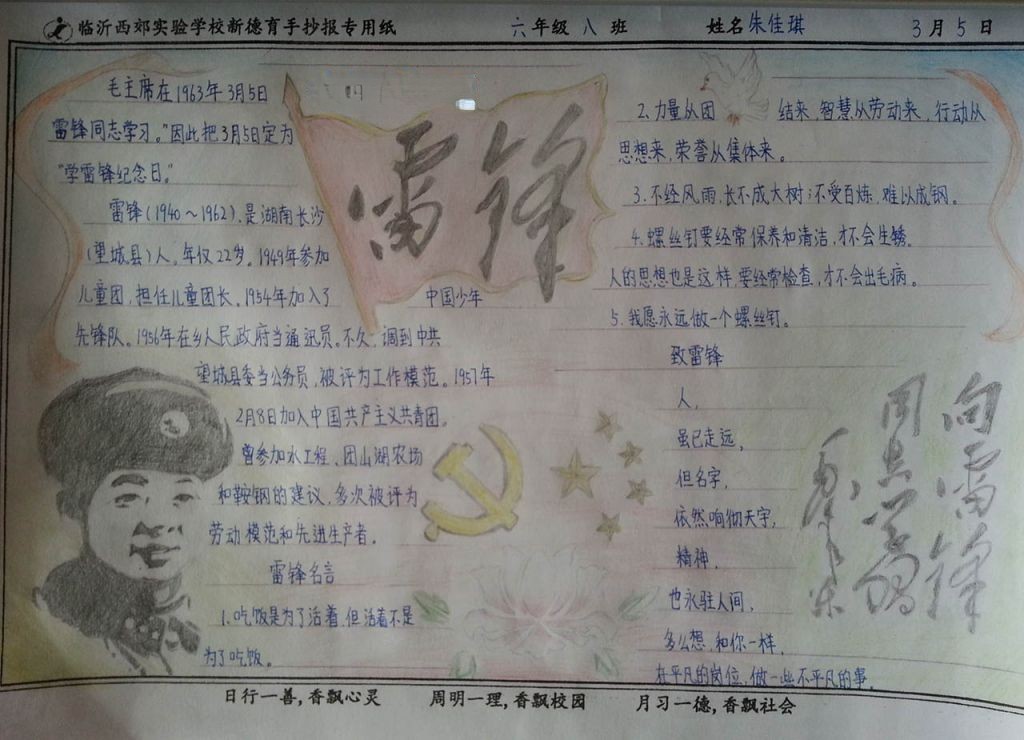 临沂西郊实验学校新德育手抄报专用纸 六年级 八 班 姓名 朱佳琪 3月5日
毛主席在1963年3月5日
雷锋同志学习。"因此把3月5日定为
"学雷锋纪念日。"
雷锋(1940~1962),是湖南长沙
(望城县)人,年仅22岁。1949年参加
儿童团,担任儿童团长,1954年加入了
中国少年
先锋队。1956年在乡人民政府当通迅员。不久,调到中共
望城县委当公务员,被评为工作模范。1957年
2月8日加入中国共产主义共青团。
曾参加水工程、团山湖农场
和鞍钢的建议,多次被评为
劳动模范和先进生产者。
雷锋名言
1.吃饭是为了活着,但活着不是
为了吃饭。
雷锋
2.力量从团结来,智慧从劳动来,行动从
思想来,荣誉从集体来。
3.不经风雨,长不成大树;不受百炼,难以成钢。
4.螺丝钉要经常保养和清洁,才不会生锈。
人的思想也是这样,要经常检查,才不会出毛病。
5.我愿永远做一个螺丝钉。
致雷锋
人,
虽已走远,
但名字,
依然响彻天宇,
精神,
也永驻人间,
多么想,和你一样,
在平凡的岗位,做一些不平凡的事,
向雷锋
同志学习
毛泽东
日行一善,香飘心灵 周明一理,香飘校园 月习一德,香飘社会